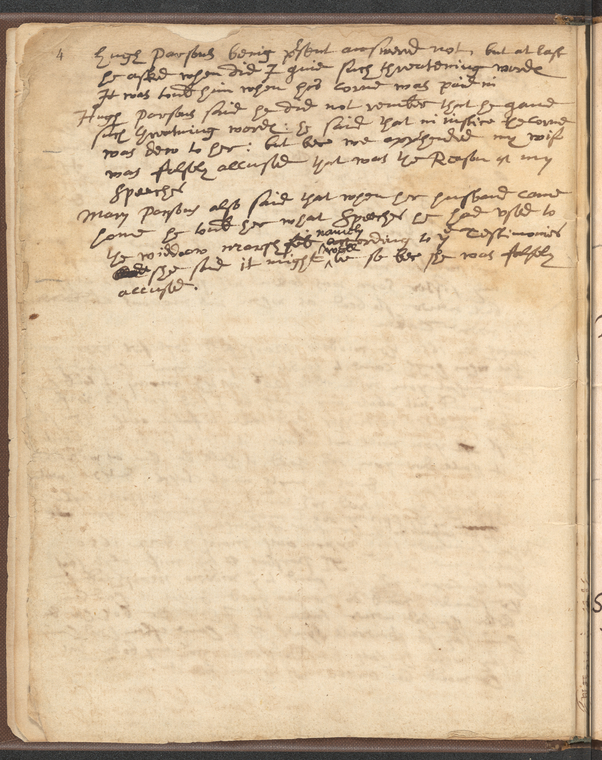 4
Hugh Parsons being prsent answered not, but at last
he asked when did I give such threatening words
It was tould him when his corne was paid in
Hugh Parsons said he did not remember that he gave
such threatning words: he said that in justice the corne
was dew to her: but bec we apprhended my wife
was falsly accused that was the Reason of my
Speeches
Mary Parsons also said that when her husband came
home he tould her what Speeches he had used to
the widdow marsh namely
according to ye Testimonies
she said it might well be so bec she was falsly
accused.